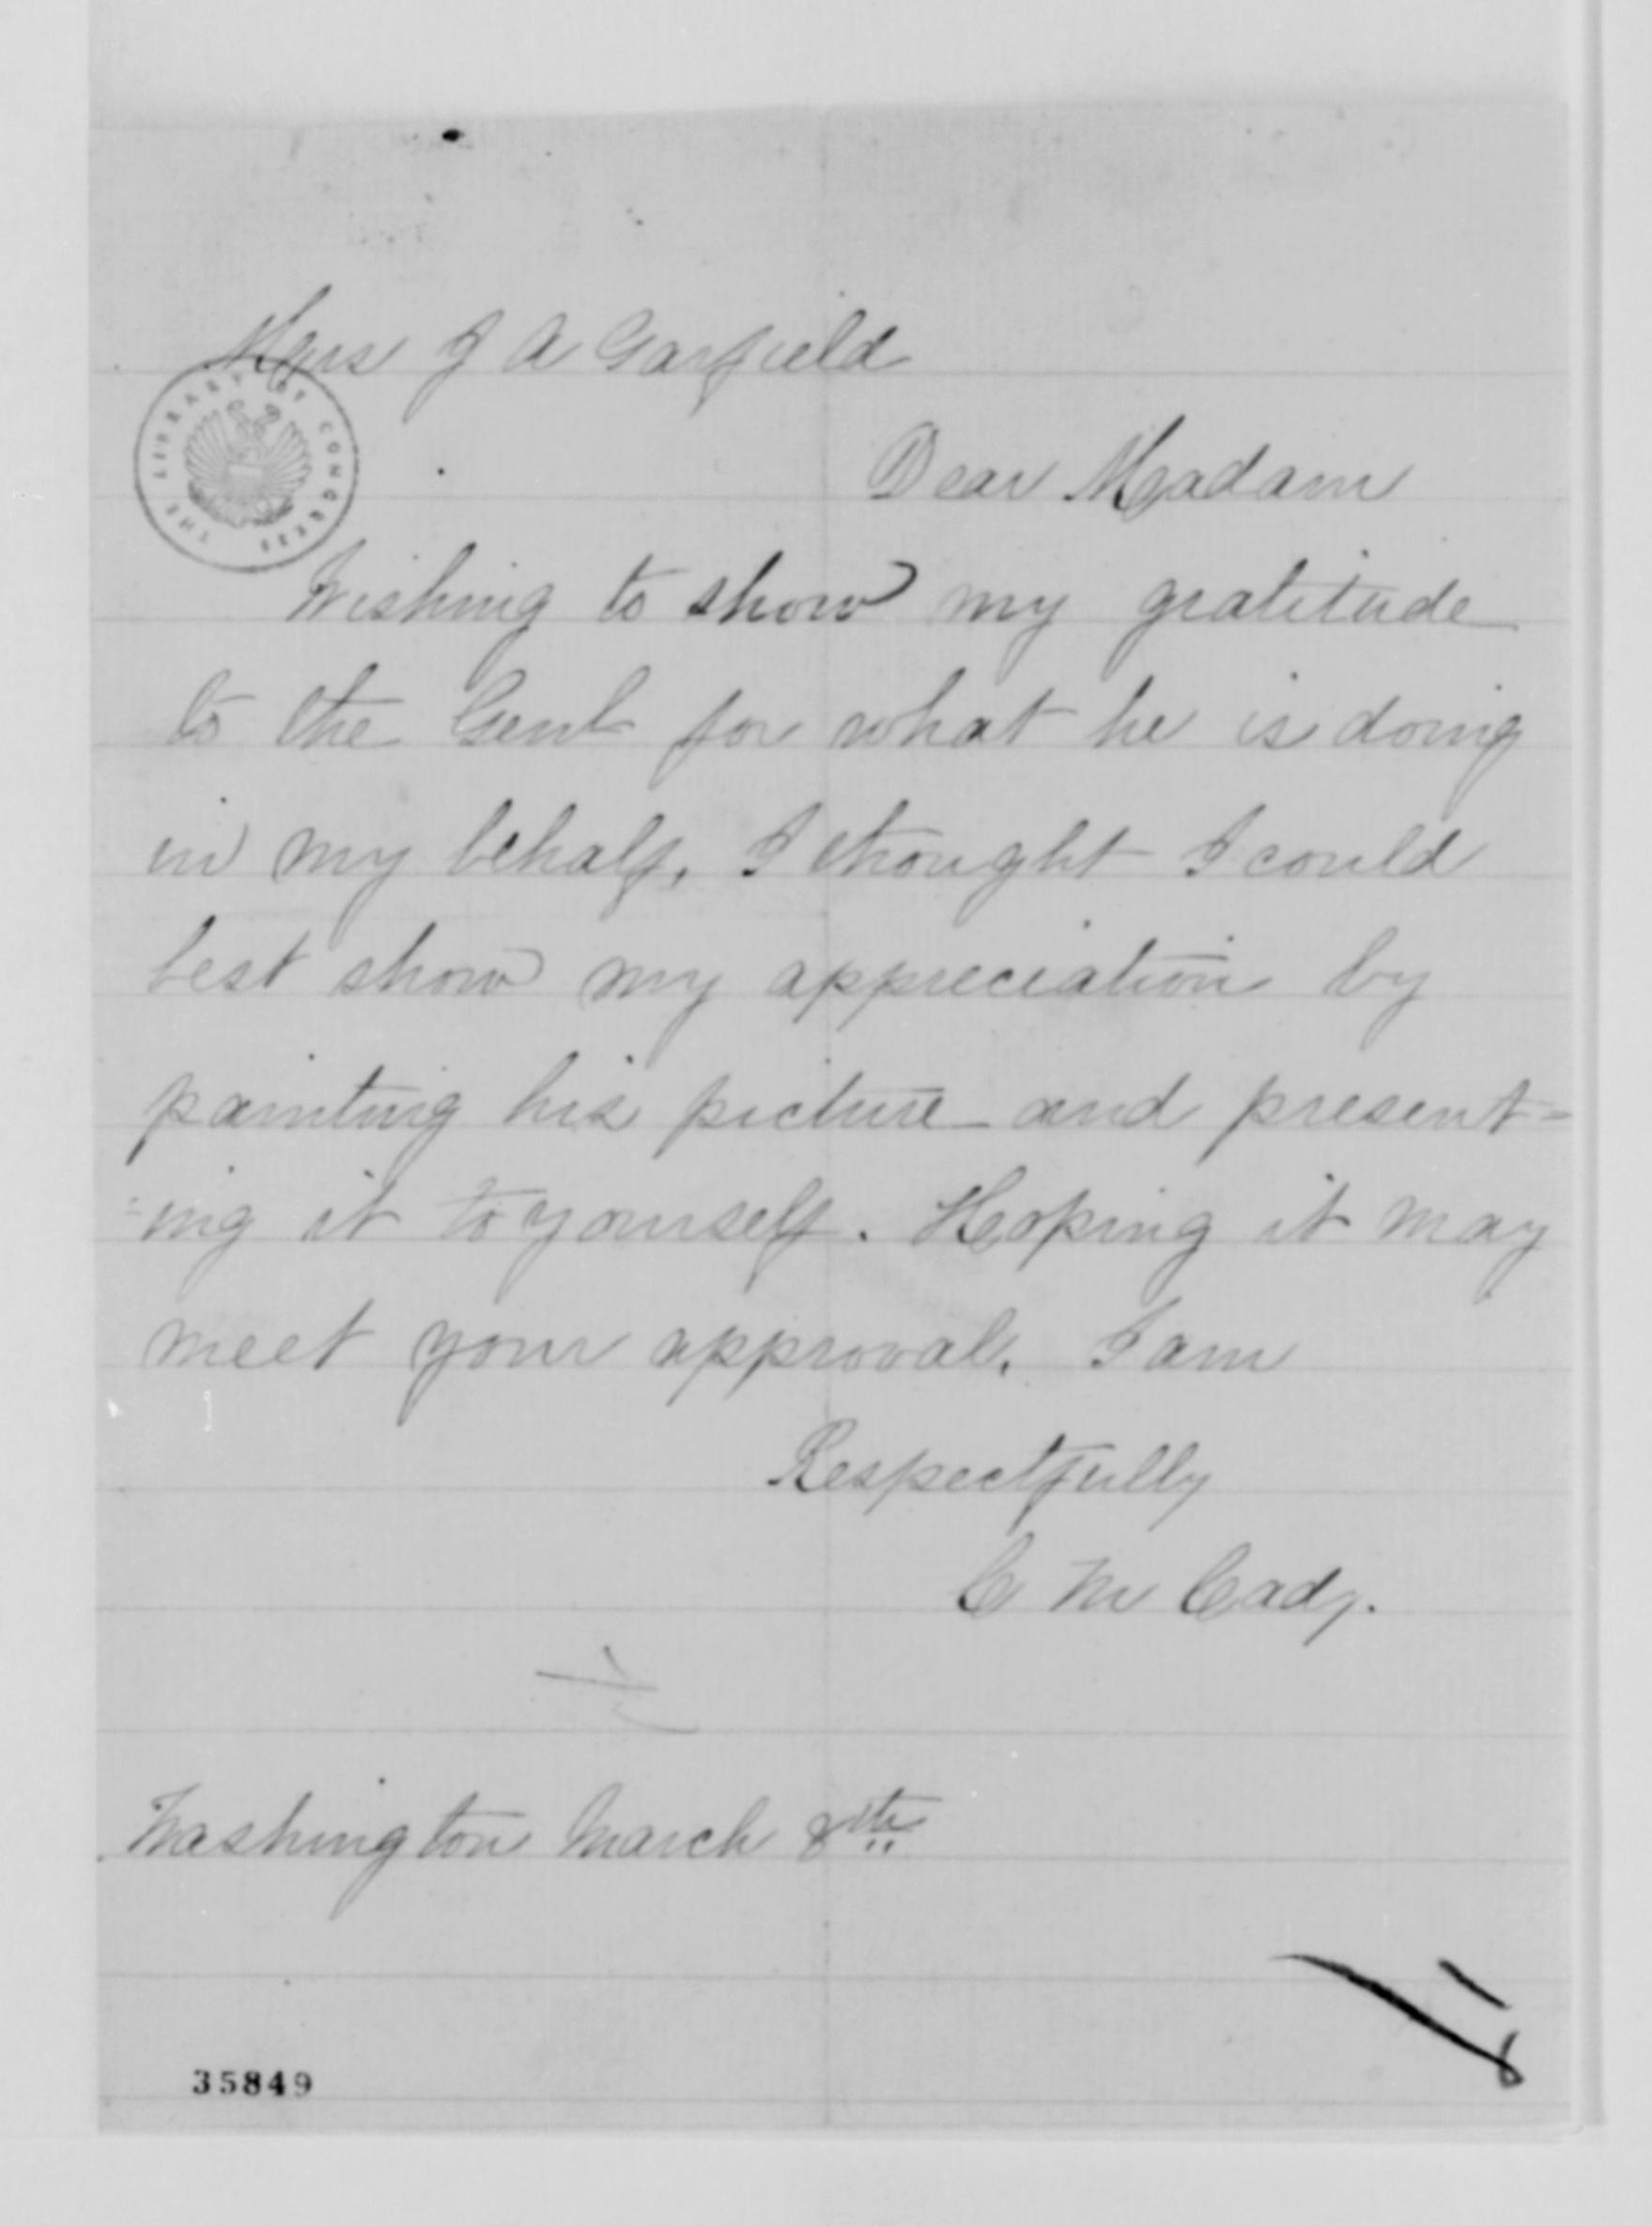 Mrs J A Garfield
THE LIBRARY OF CONGRESS
Dear Madam
Wishing to show my gratitude
to the Genl for what he is doing
in my behalf, I thought I could
best show my appreciation by
painting his picture and present=
=ing it to yourself. Hoping it may
meet your approval, I am
Respectfully
C M Cady.
Washington March 8th
35849